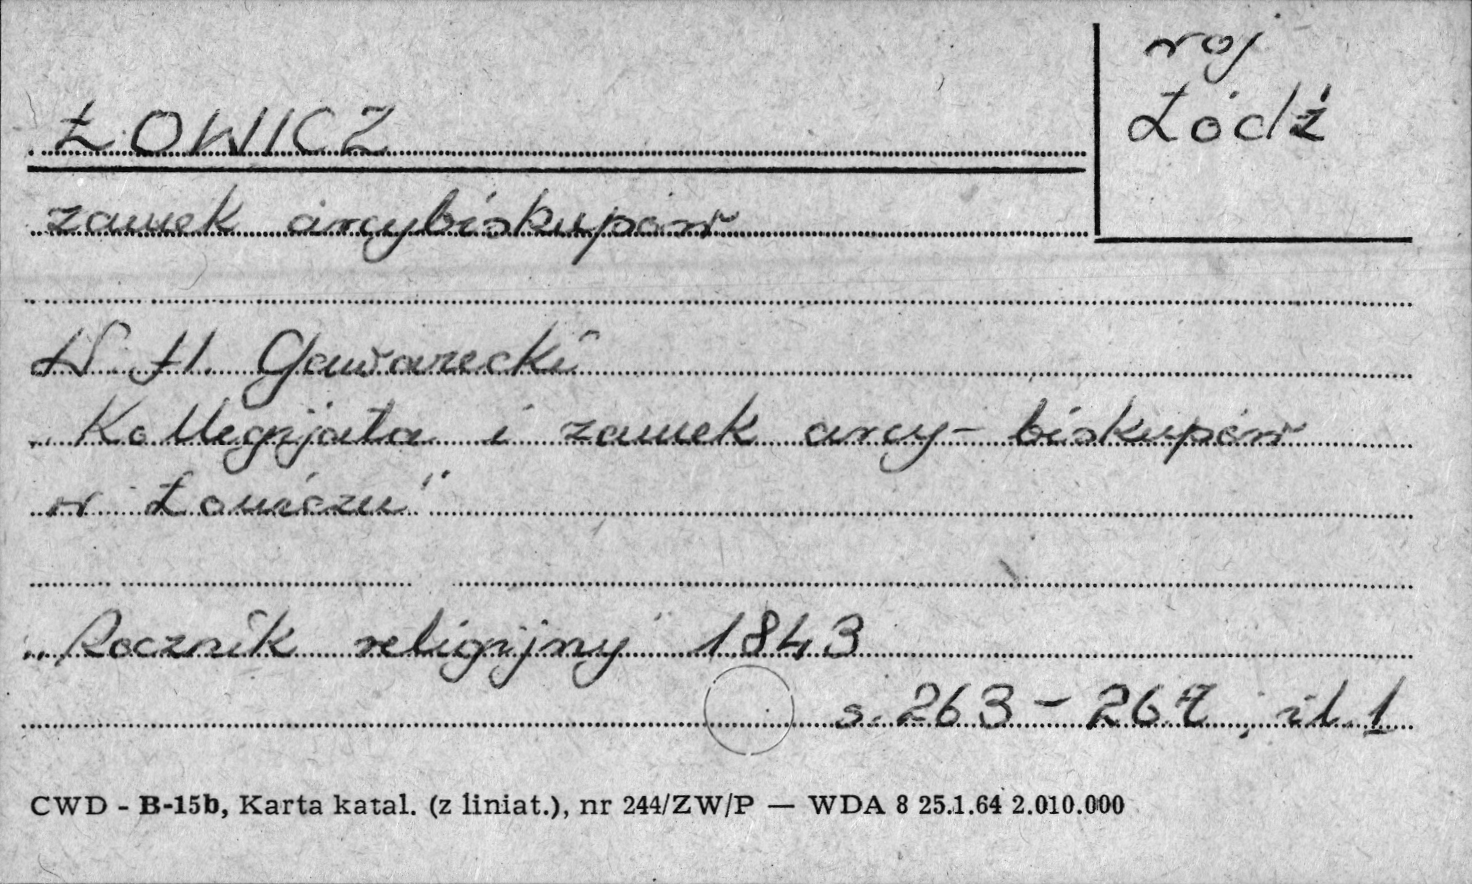 woj
Łódź
ŁOWICZ
zamek arcybiskupów
W. H. Gawarecki
„Kollegijata i zamek arcy-biskupów
w Łowiczu"
„Rocznik religijny" 1843
s. 263-267, il. 1
CWD - B-15b, Karta katal. (z liniat.), nr 244/ZW/P — WDA 8 25.1.64 2.010.000